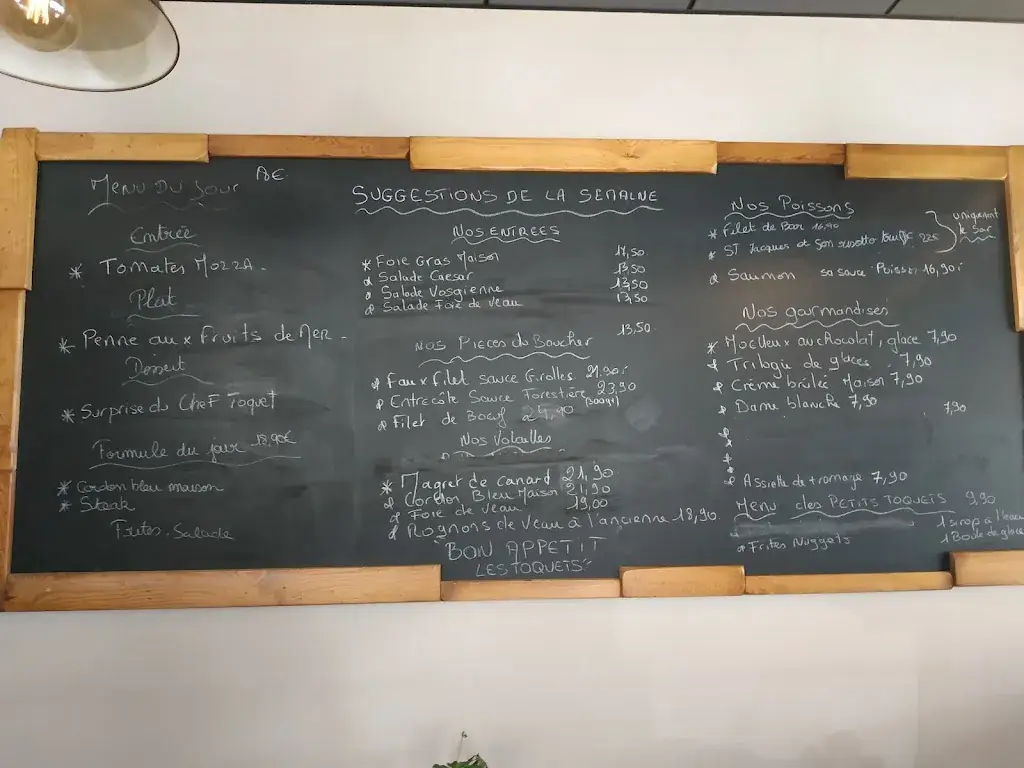 MENU DU JOUR
Entrée
* TOMATES MOZZA.
Plat
* Penne aux Fruits de Mer.
Dessert
* Surprise du Chef Toquet
Formule du jour 18,90€
* Cordon bleu maison
* Steak
Frites. Salade
SUGGESTIONS DE LA SEMAINE
NOS ENTREES
* Foie Gras Maison 17,50
* Salade Caesar 13,50
* Salade Vosgienne 13,50
* Salade Foie de Veau 13,50
13,50.
Nos Pieces du Boucher
* Faux filet sauce Girolles 21,90
* Entrecôte Sauce Forestière 23,90
* Filet de Boeuf 24,90
Nos Volailles
* Magret de canard 21,90
* Cordon Bleu Maison 21,90
* Foie de Veau 19,00
* Rognons de Veau à l'ancienne 18,90
BON APPETIT
LES TOQUETS
Nos Poissons
* Filet de Bar 16,90
* ST Jacques et Son risotto truffe 22€
uniquement le soir
* Saumon sa sauce Poisson 16,90
Nos gourmandises
* Moelleux au chocolat, glace 7,90
* Trilogie de glaces. 7,90
* Crème brûlée Maison 7,90
* Dame blanche 7,90
7,90
*
*
*
* Assiette de fromage 7,90
Menu des PETITS TOQUETS 9,90
* Frites Nuggets
1 sirop à l'eau
1 Boule de glace